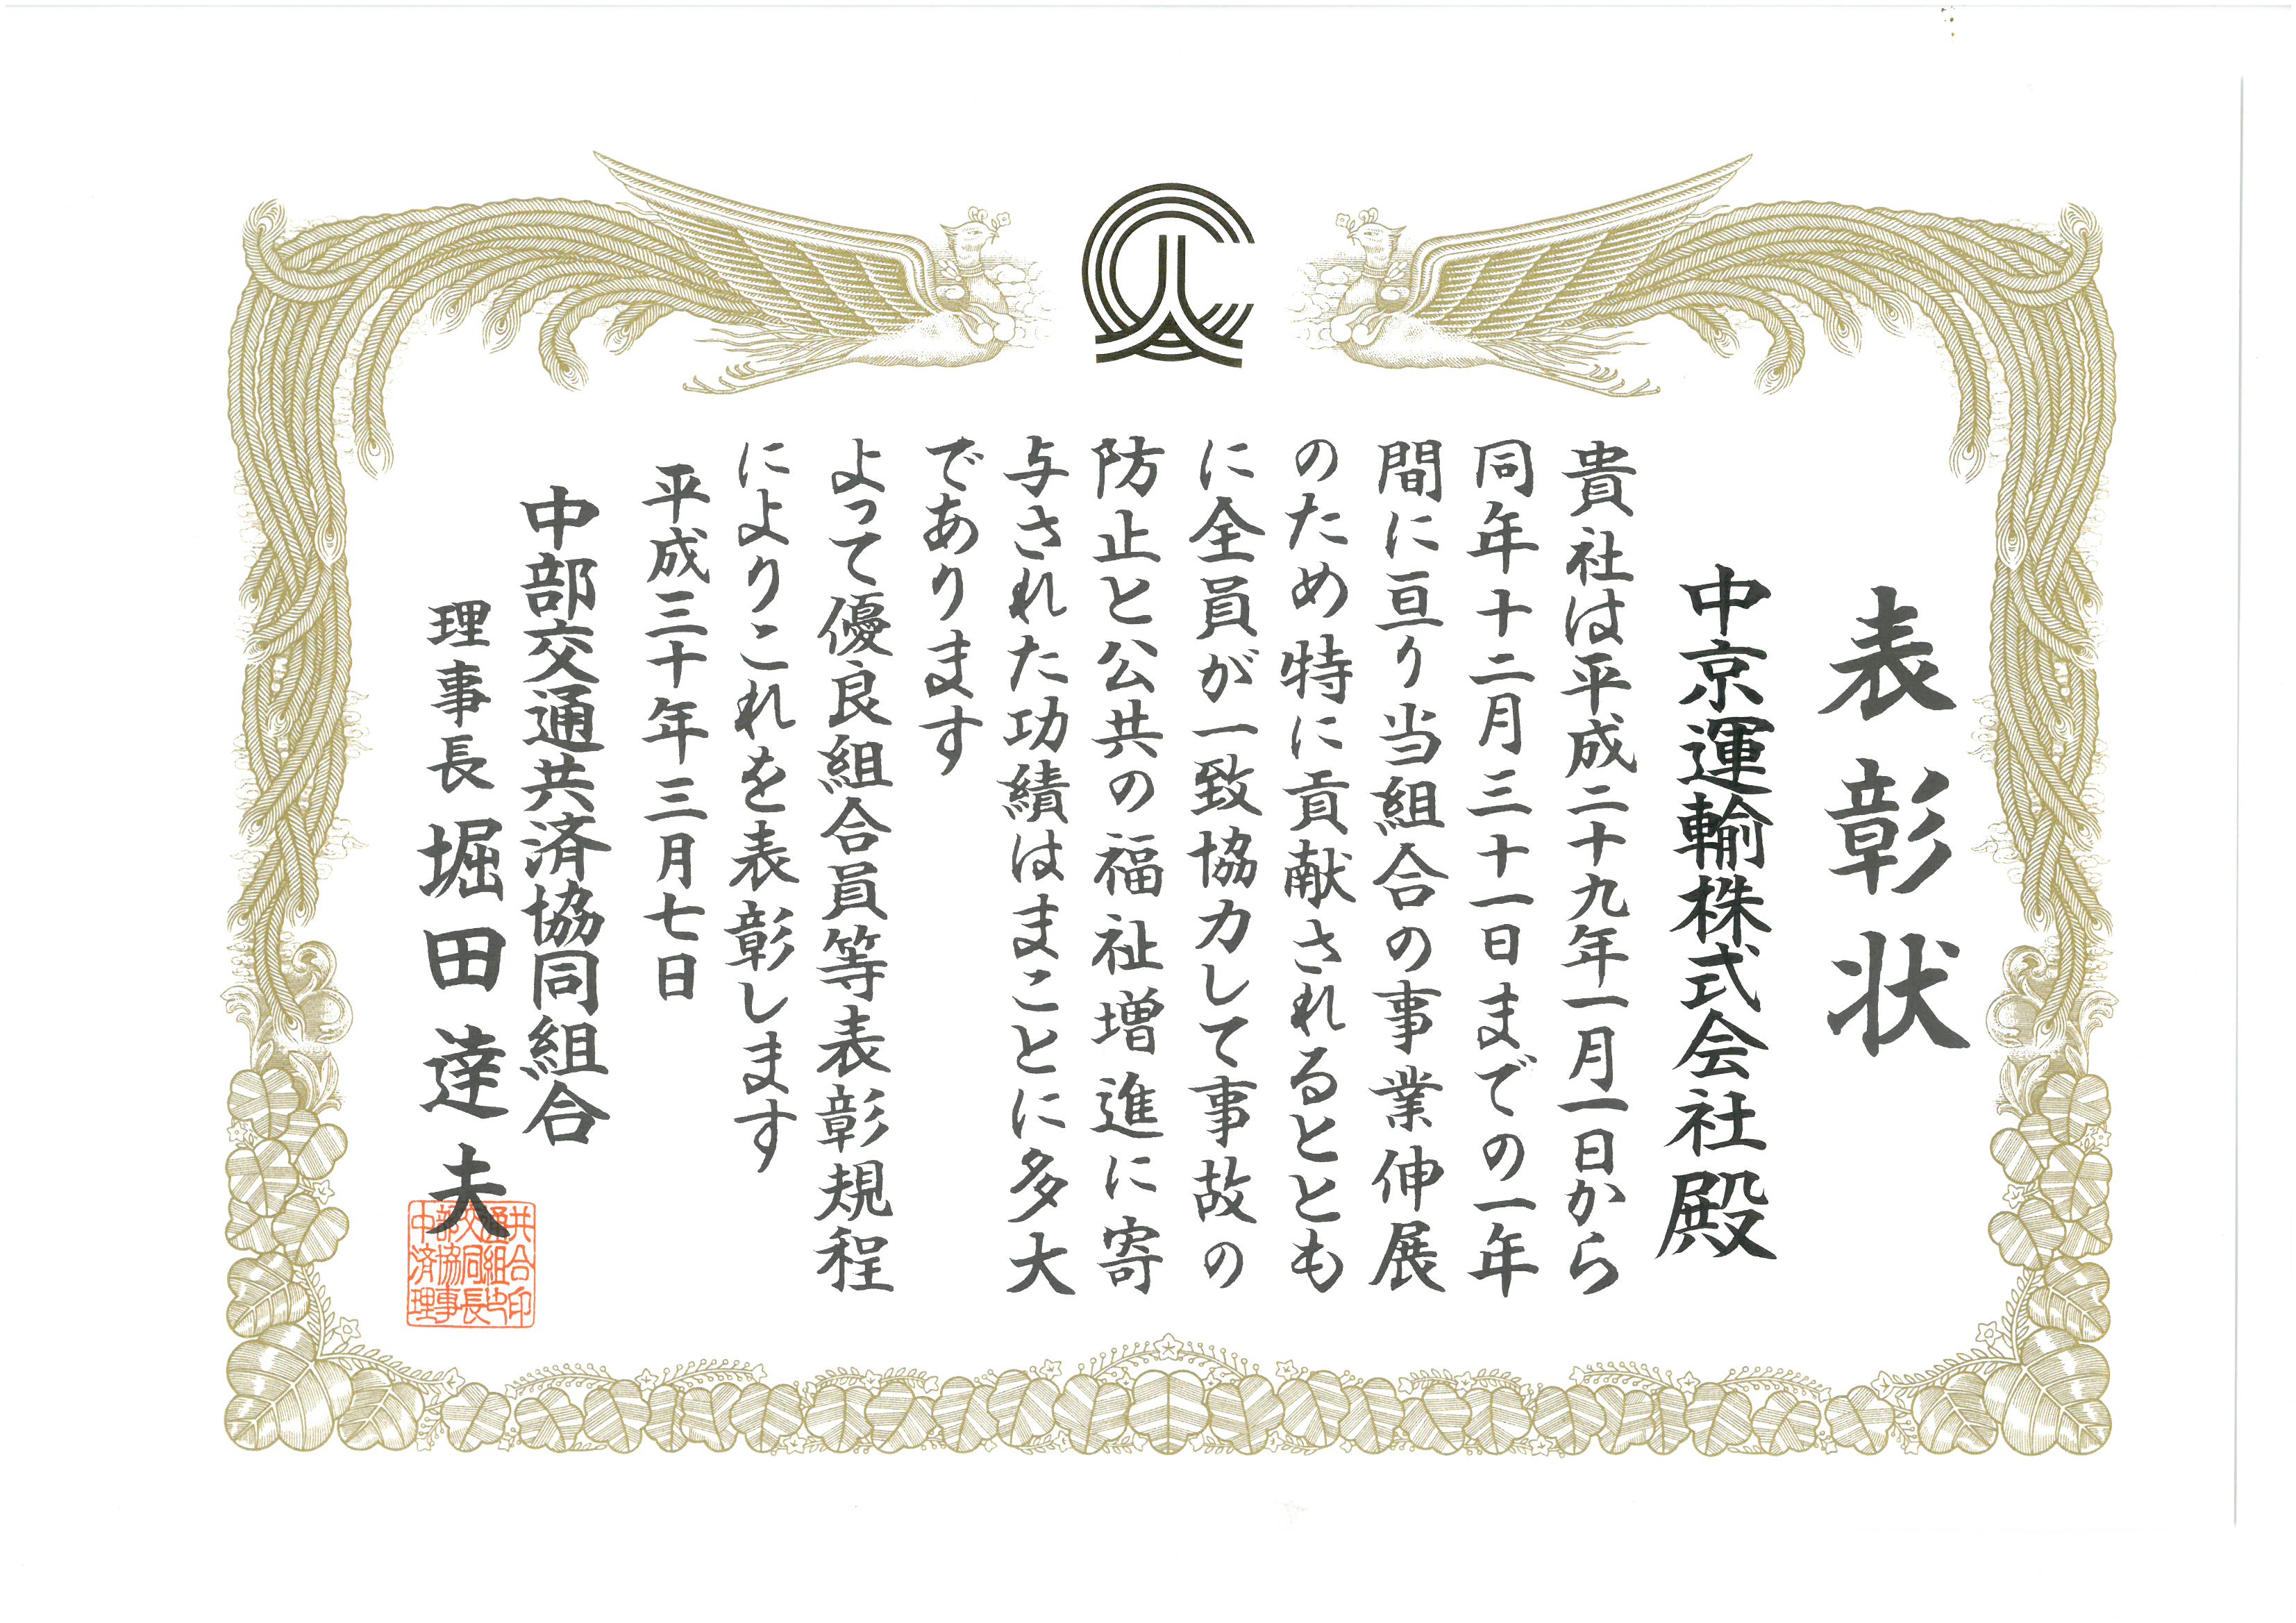 表彰状
中京運輸株式会社殿
貴社は平成二十九年一月一日から
同年十二月三十一日までの一年
間に亘り当組合の事業伸展
のため特に貢献されるととも
に全員が一致協力して事故の
防止と公共の福祉増進に寄
与された功績はまことに多大
であります
よって優良組合員等表彰規程
によりこれを表彰します
平成三十年三月七日
中部交通共済協同組合
理事長 堀田達夫
中部交通共
済協同組合
理事長之印